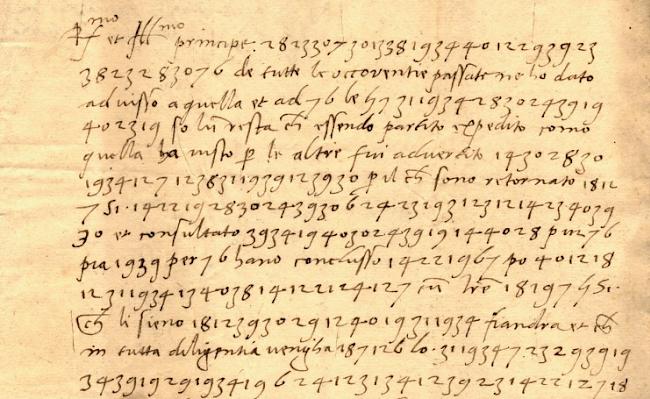 R.mo et Ill.mo principe. 2823307301338193440122939 23
38232830 76 de tutte le occorentie passate ne ho dato
advisso a quella et ad 76 le h7311934283024391 9
402319 so lu resta essendo partito expedito como
quella ha visto p le altre fui advertito 143028 30
1934127123831193912393 0 p il sono retornato 1812
7 51. 142219283024393062423193123121423403 9
30 et consultato 393419403024391914402 8 p 76
pra 1939 per 76 hano conclusso 1422196 7 po 401218
1231193413403814122124127 1819 7 h 51.
li sieno 181239302912401931193 4 fiandra et
in tutta diligentia vengha 187126 lo. 31193472329391 9
343919291934196241231341239231422127 18